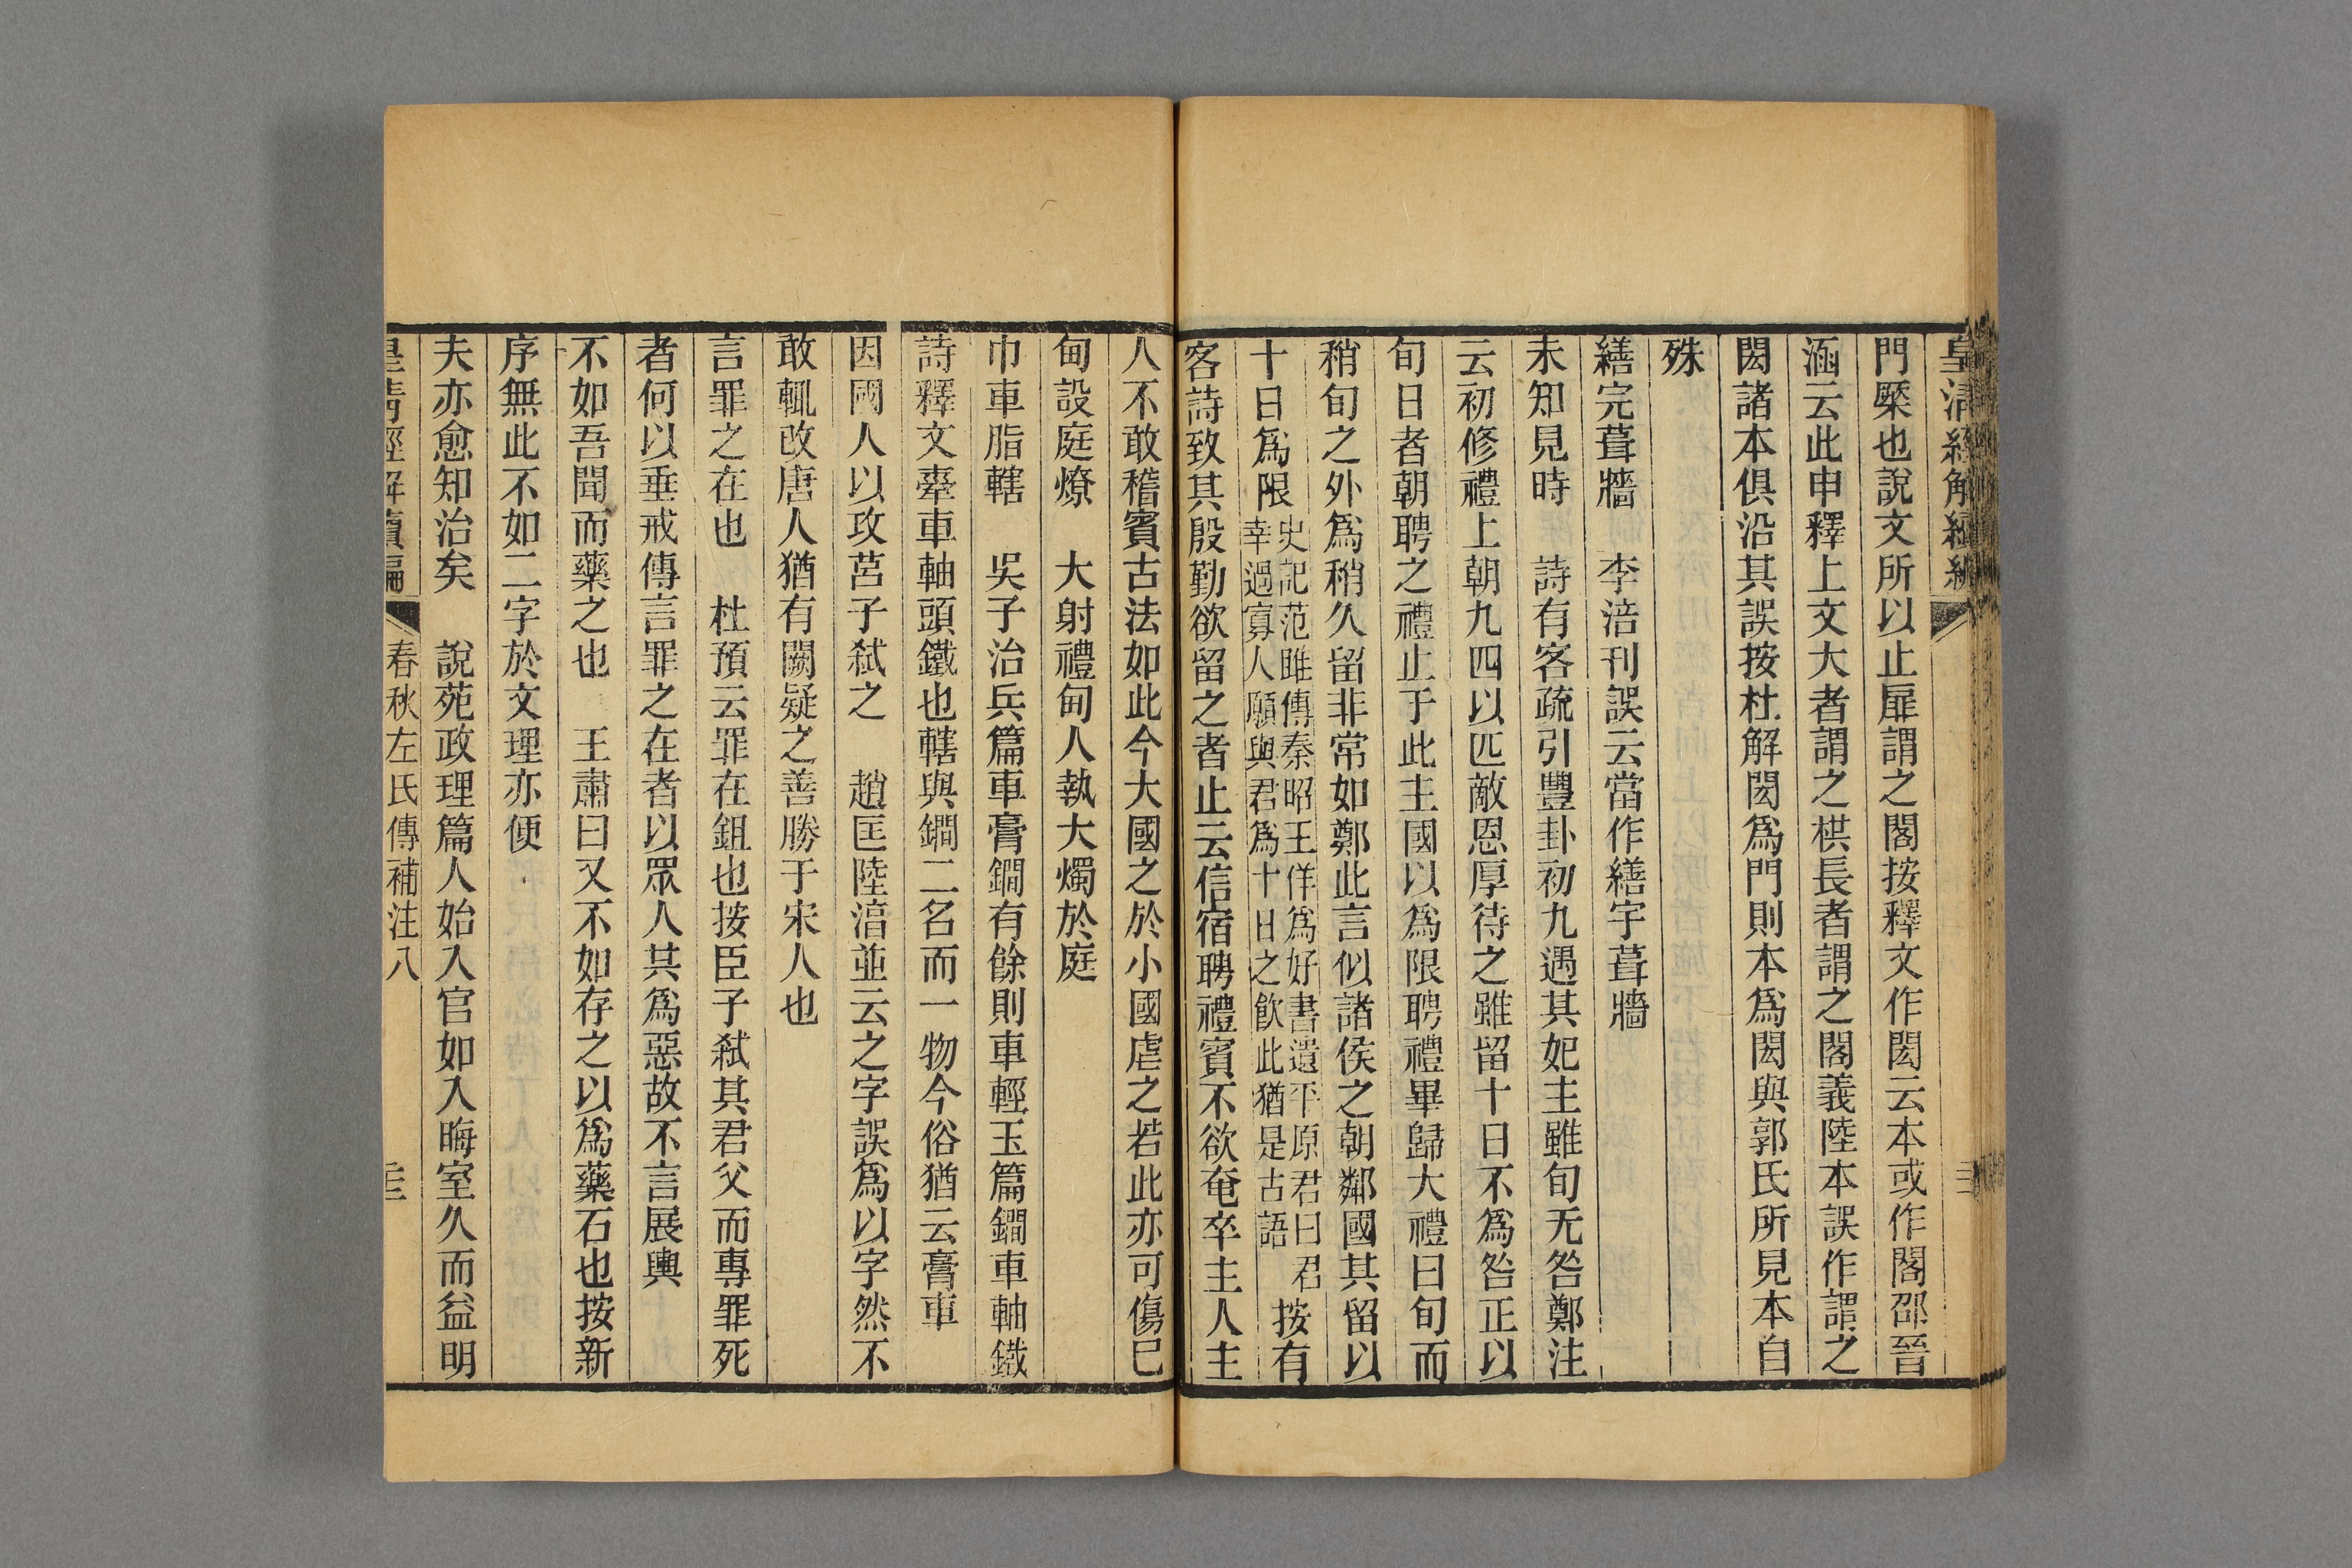 皇清經解續編
門橜也說文所以止扉謂之閣按釋文作閎云本或作閣邵晉
涵云此申釋上文大者謂之栱長者謂之閣義陸本誤作謂之
閎諸本俱沿其誤按杜解閎爲門則本爲閎與郭氏所見本自
殊
繕完葺牆　李涪刊誤云當作繕宇葺牆
未知見時　詩有客疏引豐卦初九遇其妃主雖旬无咎鄭注
云初修禮上朝九四以匹敵恩厚待之雖留十日不爲咎正以
旬日者朝聘之禮止于此主國以爲限聘禮畢歸大禮曰旬而
稍旬之外爲稍久留非常如鄭此言似諸侯之朝鄰國其留以
十日爲限史記范雎傳秦昭王佯爲好書遺平原君曰君幸過寡人願與君爲十日之飲此猶是古語按有
客詩致其殷勤欲留之者止云信宿聘禮賓不欲奄卒主人主
人不敢稽賓古法如此今大國之於小國虐之若此亦可傷已
甸設庭燎　大射禮甸人執大燭於庭
巾車脂轄　吳子治兵篇車膏鐧有餘則車輕玉篇鐧車軸鐵
詩釋文舝車軸頭鐵也轄與鐧二名而一物今俗猶云膏車
因國人以攻莒子弒之　趙匡陸淳並云之字誤爲以字然不
敢輒改唐人猶有闕疑之善勝于宋人也
言罪之在也　杜預云罪在鉏也按臣子弒其君父而專罪死
者何以垂戒傳言罪之在者以眾人其爲惡故不言展輿
不如吾聞而藥之也　王肅曰又不如存之以爲藥石也按新
序無此不如二字於文理亦便
夫亦愈知治矣　說苑政理篇人始入官如入晦室久而益明
皇清經解續編　春秋左氏傳補注八